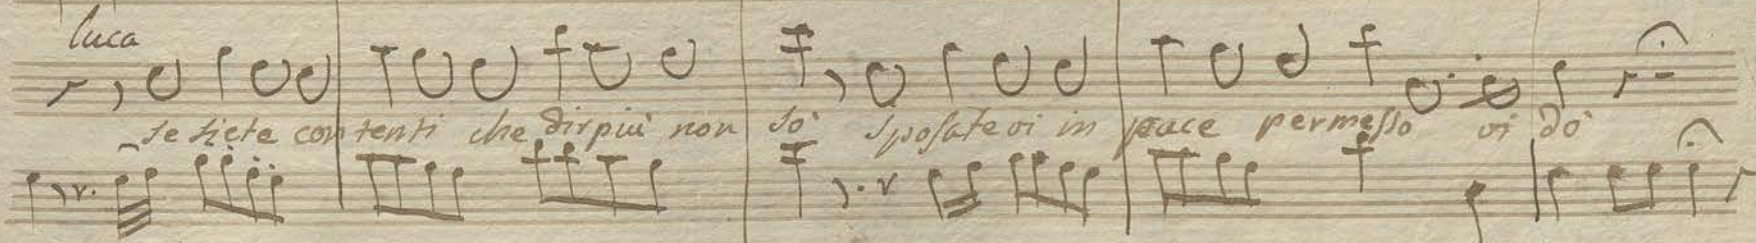 luca
se siete contenti che dir più non sò sposate vi in pace permesso vi dò